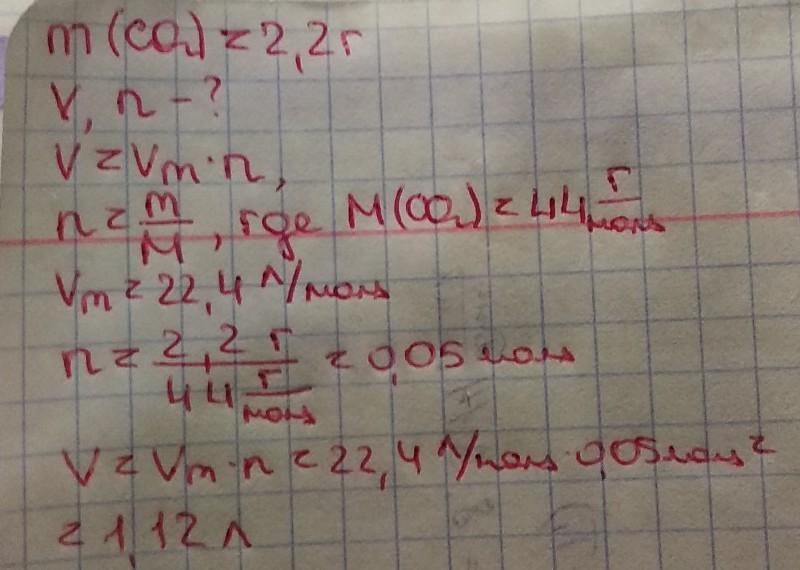 m(CO₂) = 2,2г
V, n - ?
V = Vm·n,
n = m/M, где M(CO₂) = 44 г/моль
Vm = 22,4 л/моль
n = 2,2 г / 44 г/моль = 0,05 моль
V = Vm·n = 22,4 л/моль · 0,05 моль =
= 1,12 л